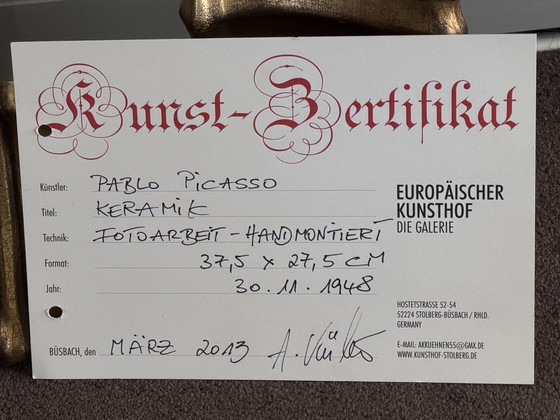 Kunst-Zertifikat
Künstler: PABLO PICASSO
Titel: KERAMIK
Technik: FOTOARBEIT - HANDMONTIERT
Format: 37,5 x 27,5 CM
Jahr: 30.11.1948
EUROPÄISCHER
KUNSTHOF
DIE GALERIE
HOSTETSTRASSE 52-54
52224 STOLBERG-BÜSBACH / RHLD.
GERMANY
E-MAIL: AKKUEHNEN55@GMX.DE
WWW.KUNSTHOF-STOLBERG.DE
BÜSBACH, den MÄRZ 2013